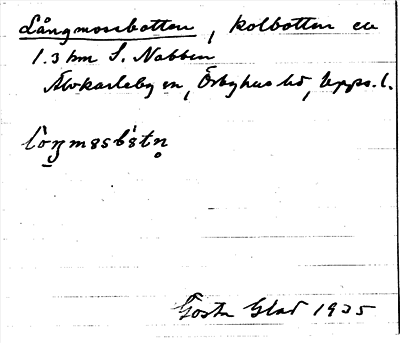 Långmossbotten, kolbotten ca
1.3 km S. Nabben
Älvkarleby sn, Örbyhus hd, Upps. l.
Gösta Glad 1935